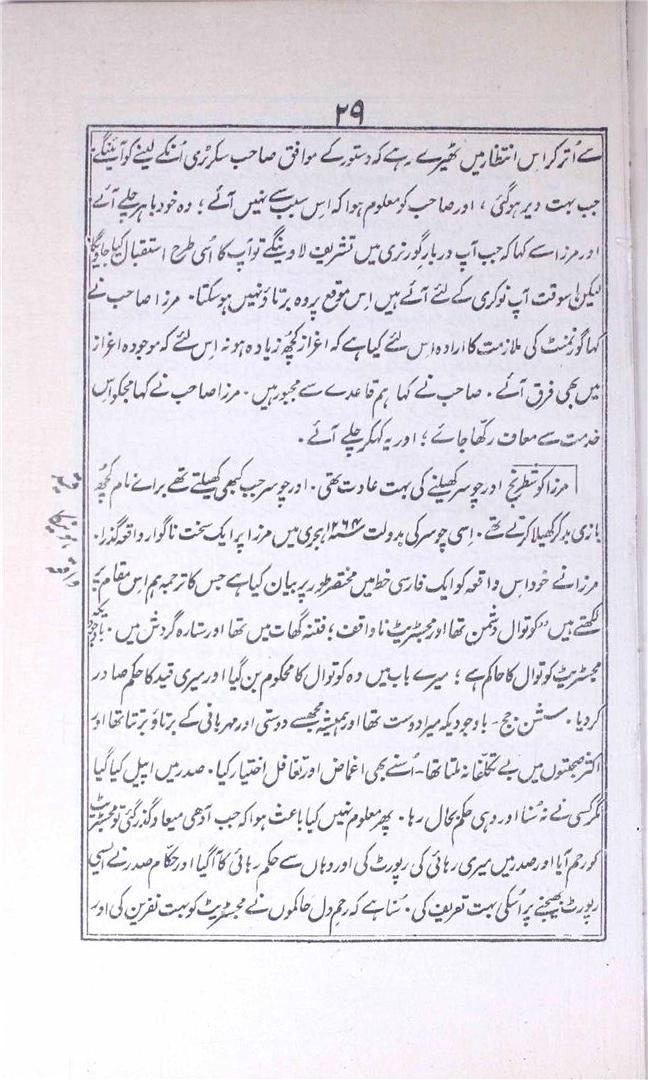 ۲۹
سے اُتر کر اِس انتظار میں ٹھیرے رہے کہ دستور کے موافق صاحب سکرٹری اُنکے لینے کو آئینگے
جب بہت دیر ہوگئی ، اور صاحب کو معلوم ہوا کہ اِس سبب سے نہیں آئے ؛ وہ خود باہر چلے آئے
اور مرزا سے کہا کہ جب آپ دربار گورنری میں تشریف لاوینگے تو آپ کا اُسی طرح استقبال کیا جاویگا
لیکن اسوقت آپ نوکری کے لئے آئے ہیں اِس موقع پر وہ برتاؤ نہیں ہو سکتا . مرزا صاحب نے
کہا گورنمنٹ کی ملازمت کا ارادہ اِس لئے کیا ہے کہ اعزاز کچھ زیادہ ہو نہ اِس لئے کہ موجودہ اعزاز
میں بھی فرق آئے . صاحب نے کہا ہم قاعدے سے مجبور ہیں . مرزا صاحب نے کہا مجکو اس
خدمت سے معاف رکھا جائے ؛ اور یہ کہکر چلے آئے .
مرزا کو شطرنج اور چوسر کھیلنے کی بہت عادت تھی . اور چوسر جب کبھی کھیلتے تھے برائے نام کچھ
بازی بدکر کھیلا کرتے تھے . اِسی چوسر کی بدولت ۱۲۶۴ ہجری میں مرزا پر ایک سخت ناگوار واقعہ گذرا .
مرزا نے خود اِس واقعہ کو ایک فارسی خط میں مختصر طور پر بیان کیا ہے جس کا ترجمہ ہم اس مقام پر
لکھتے ہیں "کوتوال دشمن تھا اور مجسٹریٹ ناواقف ؛ فتنہ گھات میں تھا اور ستارہ گردش میں . باوجودیکہ
مجسٹریٹ کوتوال کا حاکم ہے ؛ میرے باب میں وہ کوتوال کا محکوم بن گیا اور میری قید کا حکم صادر
کردیا . سشن جج - باوجودیکہ میرا دوست تھا اور ہمیشہ مجھسے دوستی اور مہربانی کے برتاؤ برتتا تھا اور
اکثر صحبتوں میں بے تکلفانہ ملتا تھا - اُسنے بھی اغماض اور تغافل اختیار کیا . صدر میں اپیل کیا گیا
مگر کسی نے نہ سُنا اور وہی حکم بحال رہا . پھر معلوم نہیں کیا باعث ہوا کہ جب آدھی میعاد گذر گئی تو مجسٹریٹ
کو رحم آیا اور صدر میں میری رہائی کی رپورٹ کی اور وہاں سے حکم رہائی کا آگیا اور حکام صدر نے ایسی
رپورٹ بھیجنے پر اُسکی بہت تعریف کی . سُنا ہے کہ رحم دل حاکموں نے مجسٹریٹ کو بہت نفرین کی اور